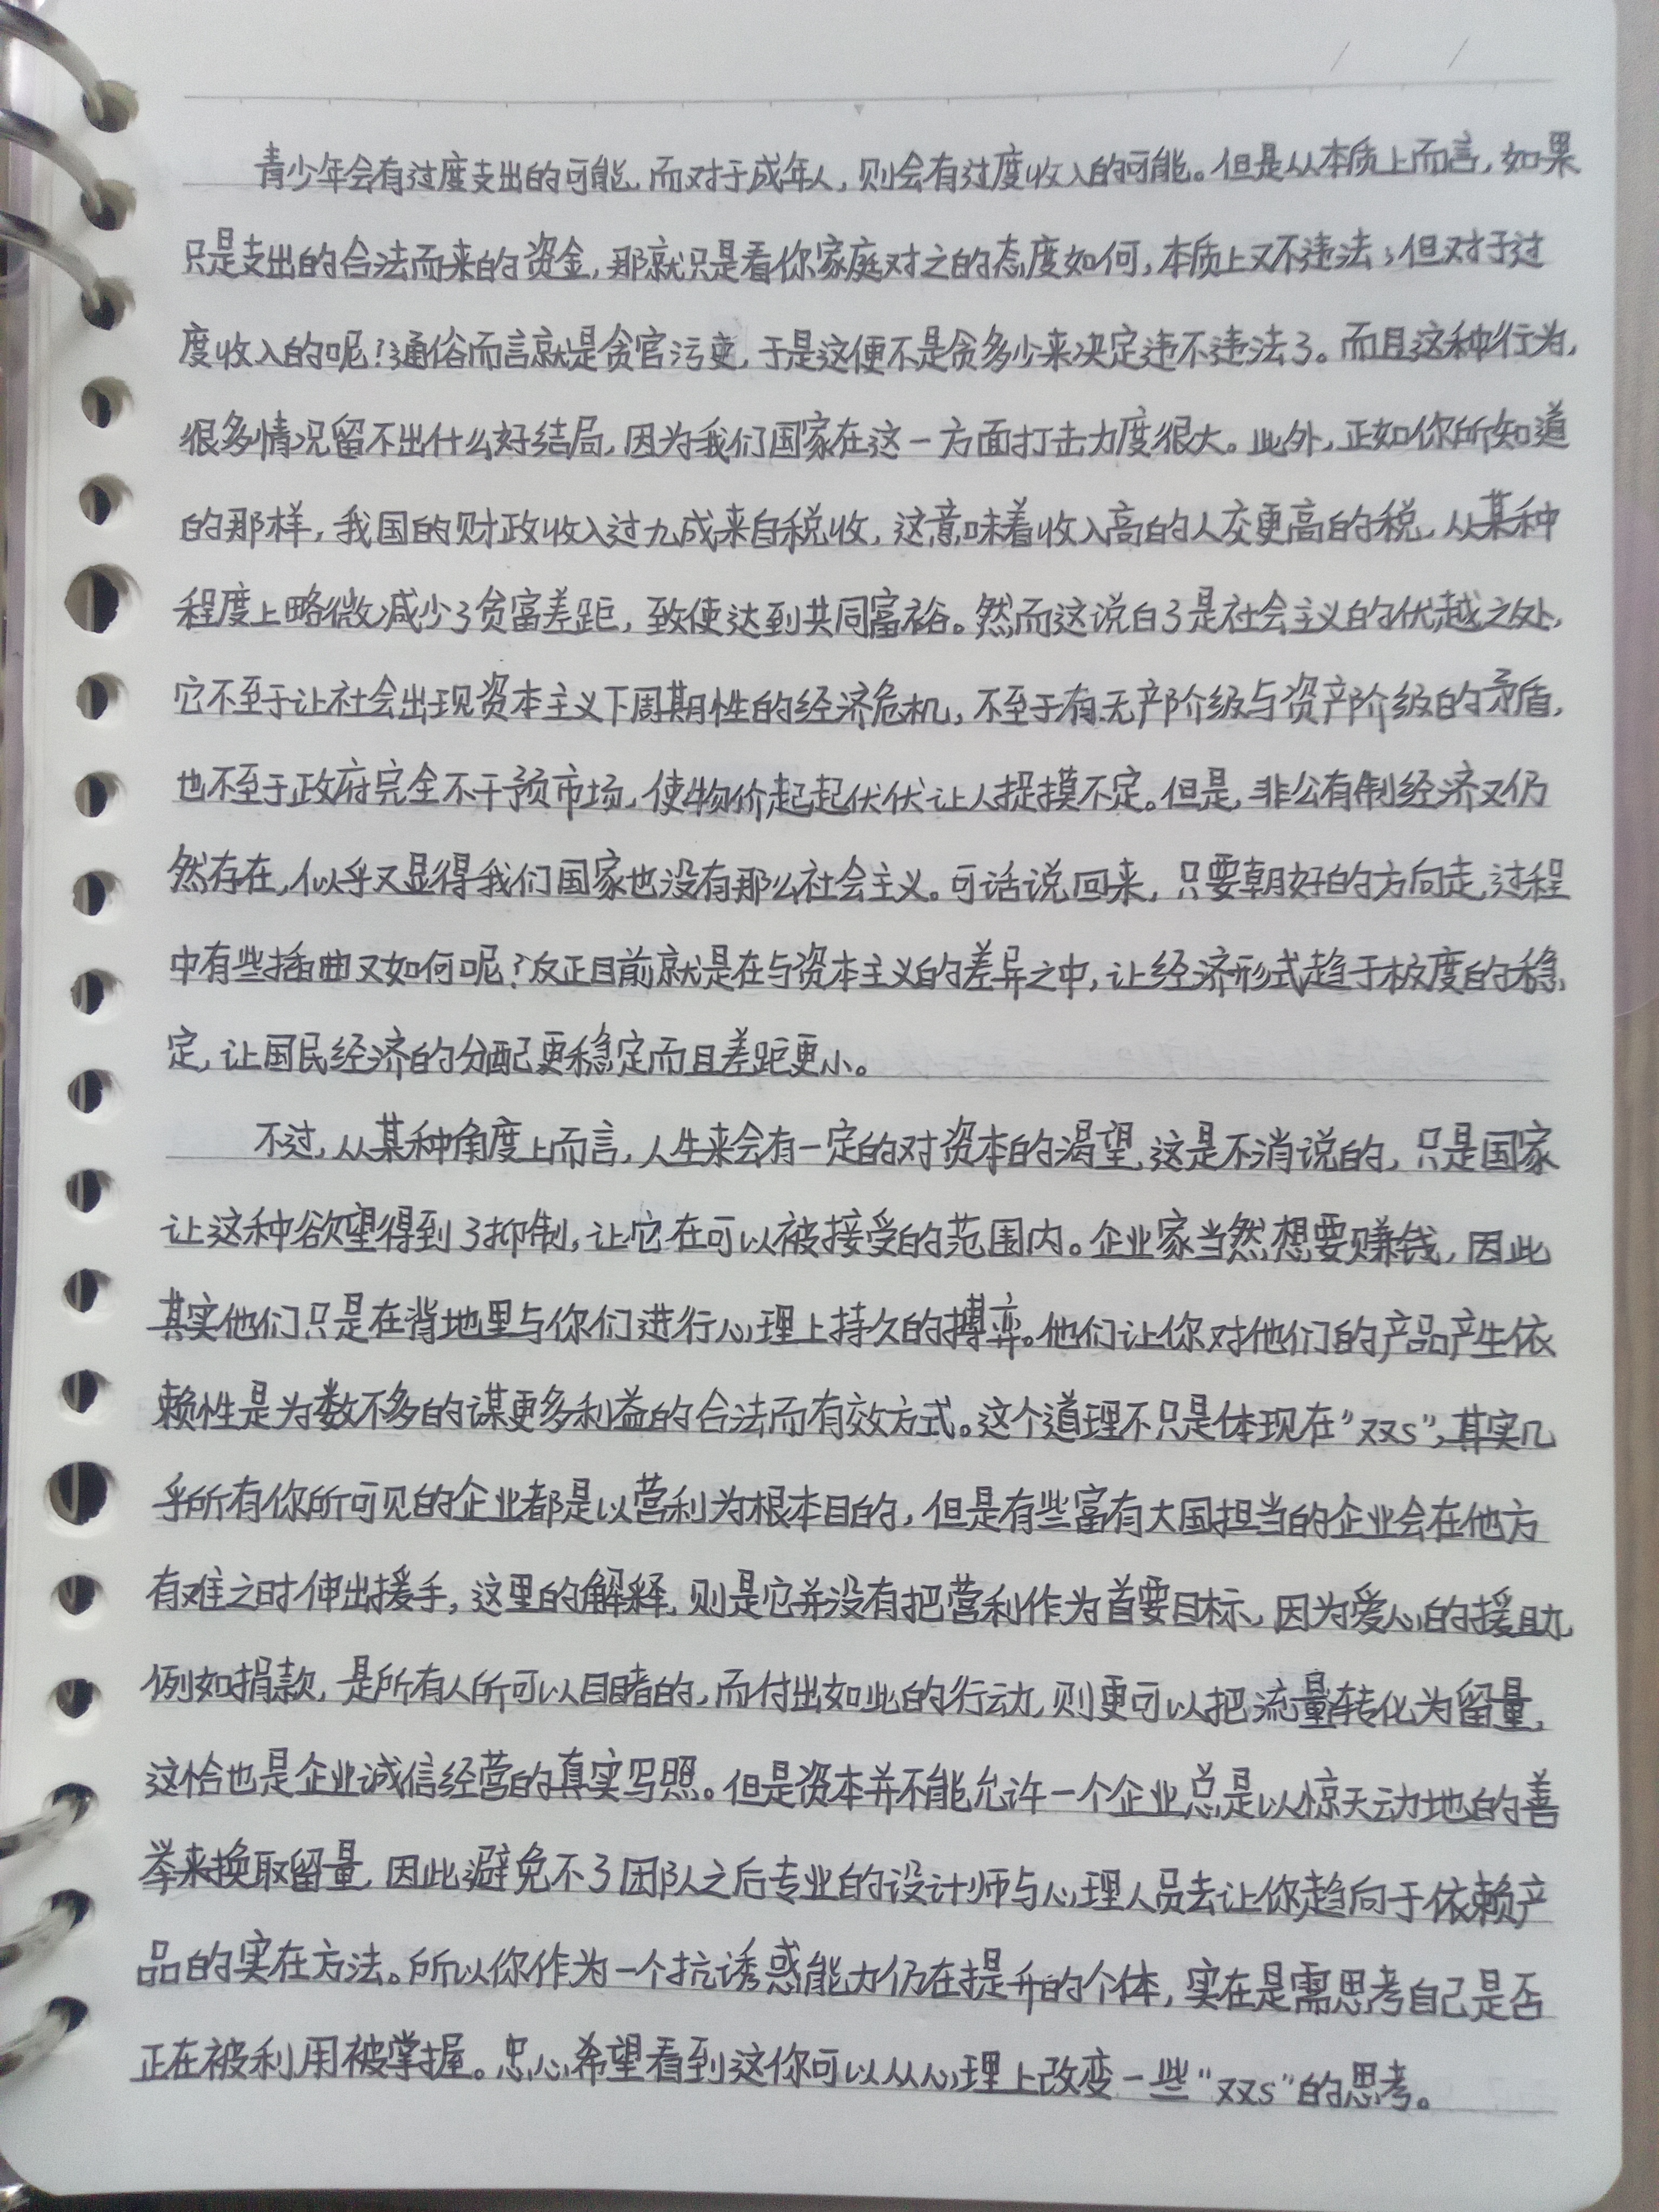 青少年会有过度支出的可能，而对于成年人，则会有过度收入的可能。但是从本质上而言，如果
只是支出的合法而来的资金，那就只是看你家庭对之的态度如何，本质上又不违法；但对于过
度收入的呢？通俗而言就是贪官污吏，于是这便不是贪多少来决定违不违法了。而且这种行为，
很多情况留不出什么好结局，因为我们国家在这一方面打击力度很大。此外，正如你所知道
的那样，我国的财政收入过九成来自税收，这意味着收入高的人交更高的税，从某种
程度上略微减少了贫富差距，致使达到共同富裕。然而这说白了是社会主义的优越之处，
它不至于让社会出现资本主义下周期性的经济危机，不至于有无产阶级与资产阶级的矛盾，
也不至于政府完全不干预市场，使物价起起伏伏让人捉摸不定。但是，非公有制经济又仍
然存在，似乎又显得我们国家也没有那么社会主义。可话说回来，只要朝好的方向走，过程
中有些插曲又如何呢？反正目前就是在与资本主义的差异之中，让经济形式趋于极度的稳
定，让国民经济的分配更稳定而且差距更小。
不过，从某种角度上而言，人生来会有一定的对资本的渴望，这是不消说的，只是国家
让这种欲望得到了抑制，让它在可以被接受的范围内。企业家当然想要赚钱，因此
其实他们只是在背地里与你们进行心理上持久的搏弈。他们让你对他们的产品产生依
赖性是为数不多的谋更多利益的合法而有效方式。这个道理不只是体现在“双S”，其实几
乎所有你所可见的企业都是以营利为根本目的，但是有些富有大国担当的企业会在他方
有难之时伸出援手，这里的解释，则是它并没有把营利作为首要目标，因为爱心的援助，
例如捐款，是所有人所可以目睹的，而付出如此的行动，则更可以把流量转化为留量，
这恰也是企业诚信经营的真实写照。但是资本并不能允许一个企业总是以惊天动地的善
举来换取留量，因此避免不了团队之后专业的设计师与心理人员去让你趋向于依赖产
品的实在方法。所以你作为一个抗诱惑能力仍在提升的个体，实在是需思考自己是否
正在被利用被掌握。忠心希望看到这你可以从心理上改变一些“双S”的思考。